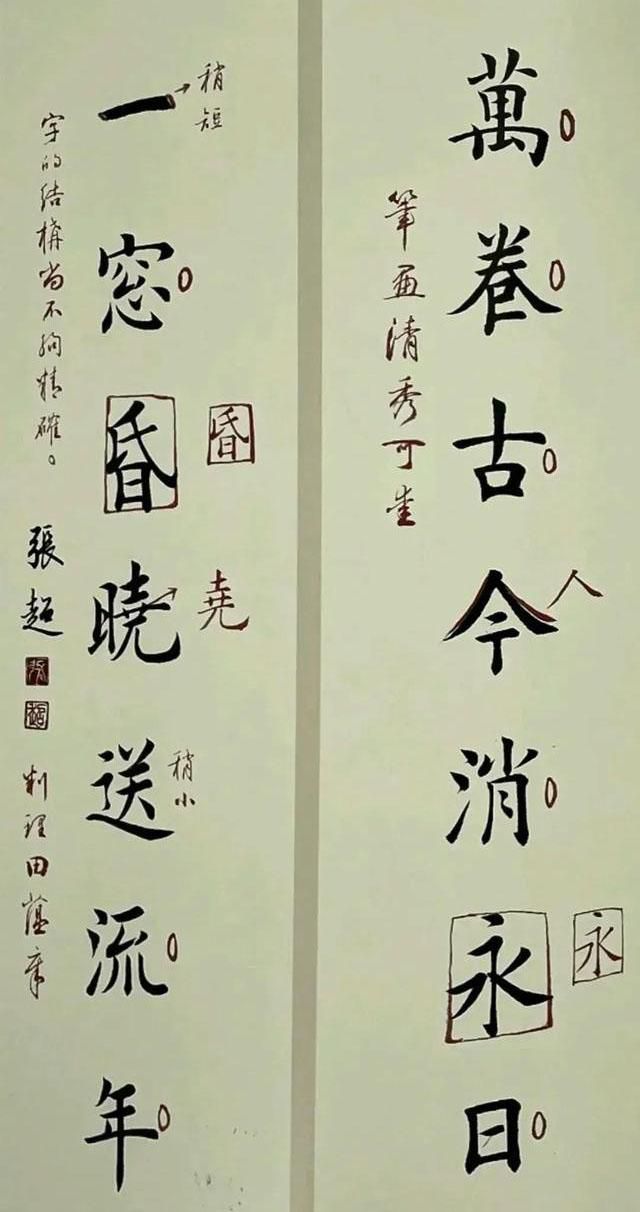 萬卷古今消永日
人
永
筆画清秀可生
一窓昏曉送流年
稍短
昏
堯
稍小
字的结構尚不夠精確。
張超
田蘊章